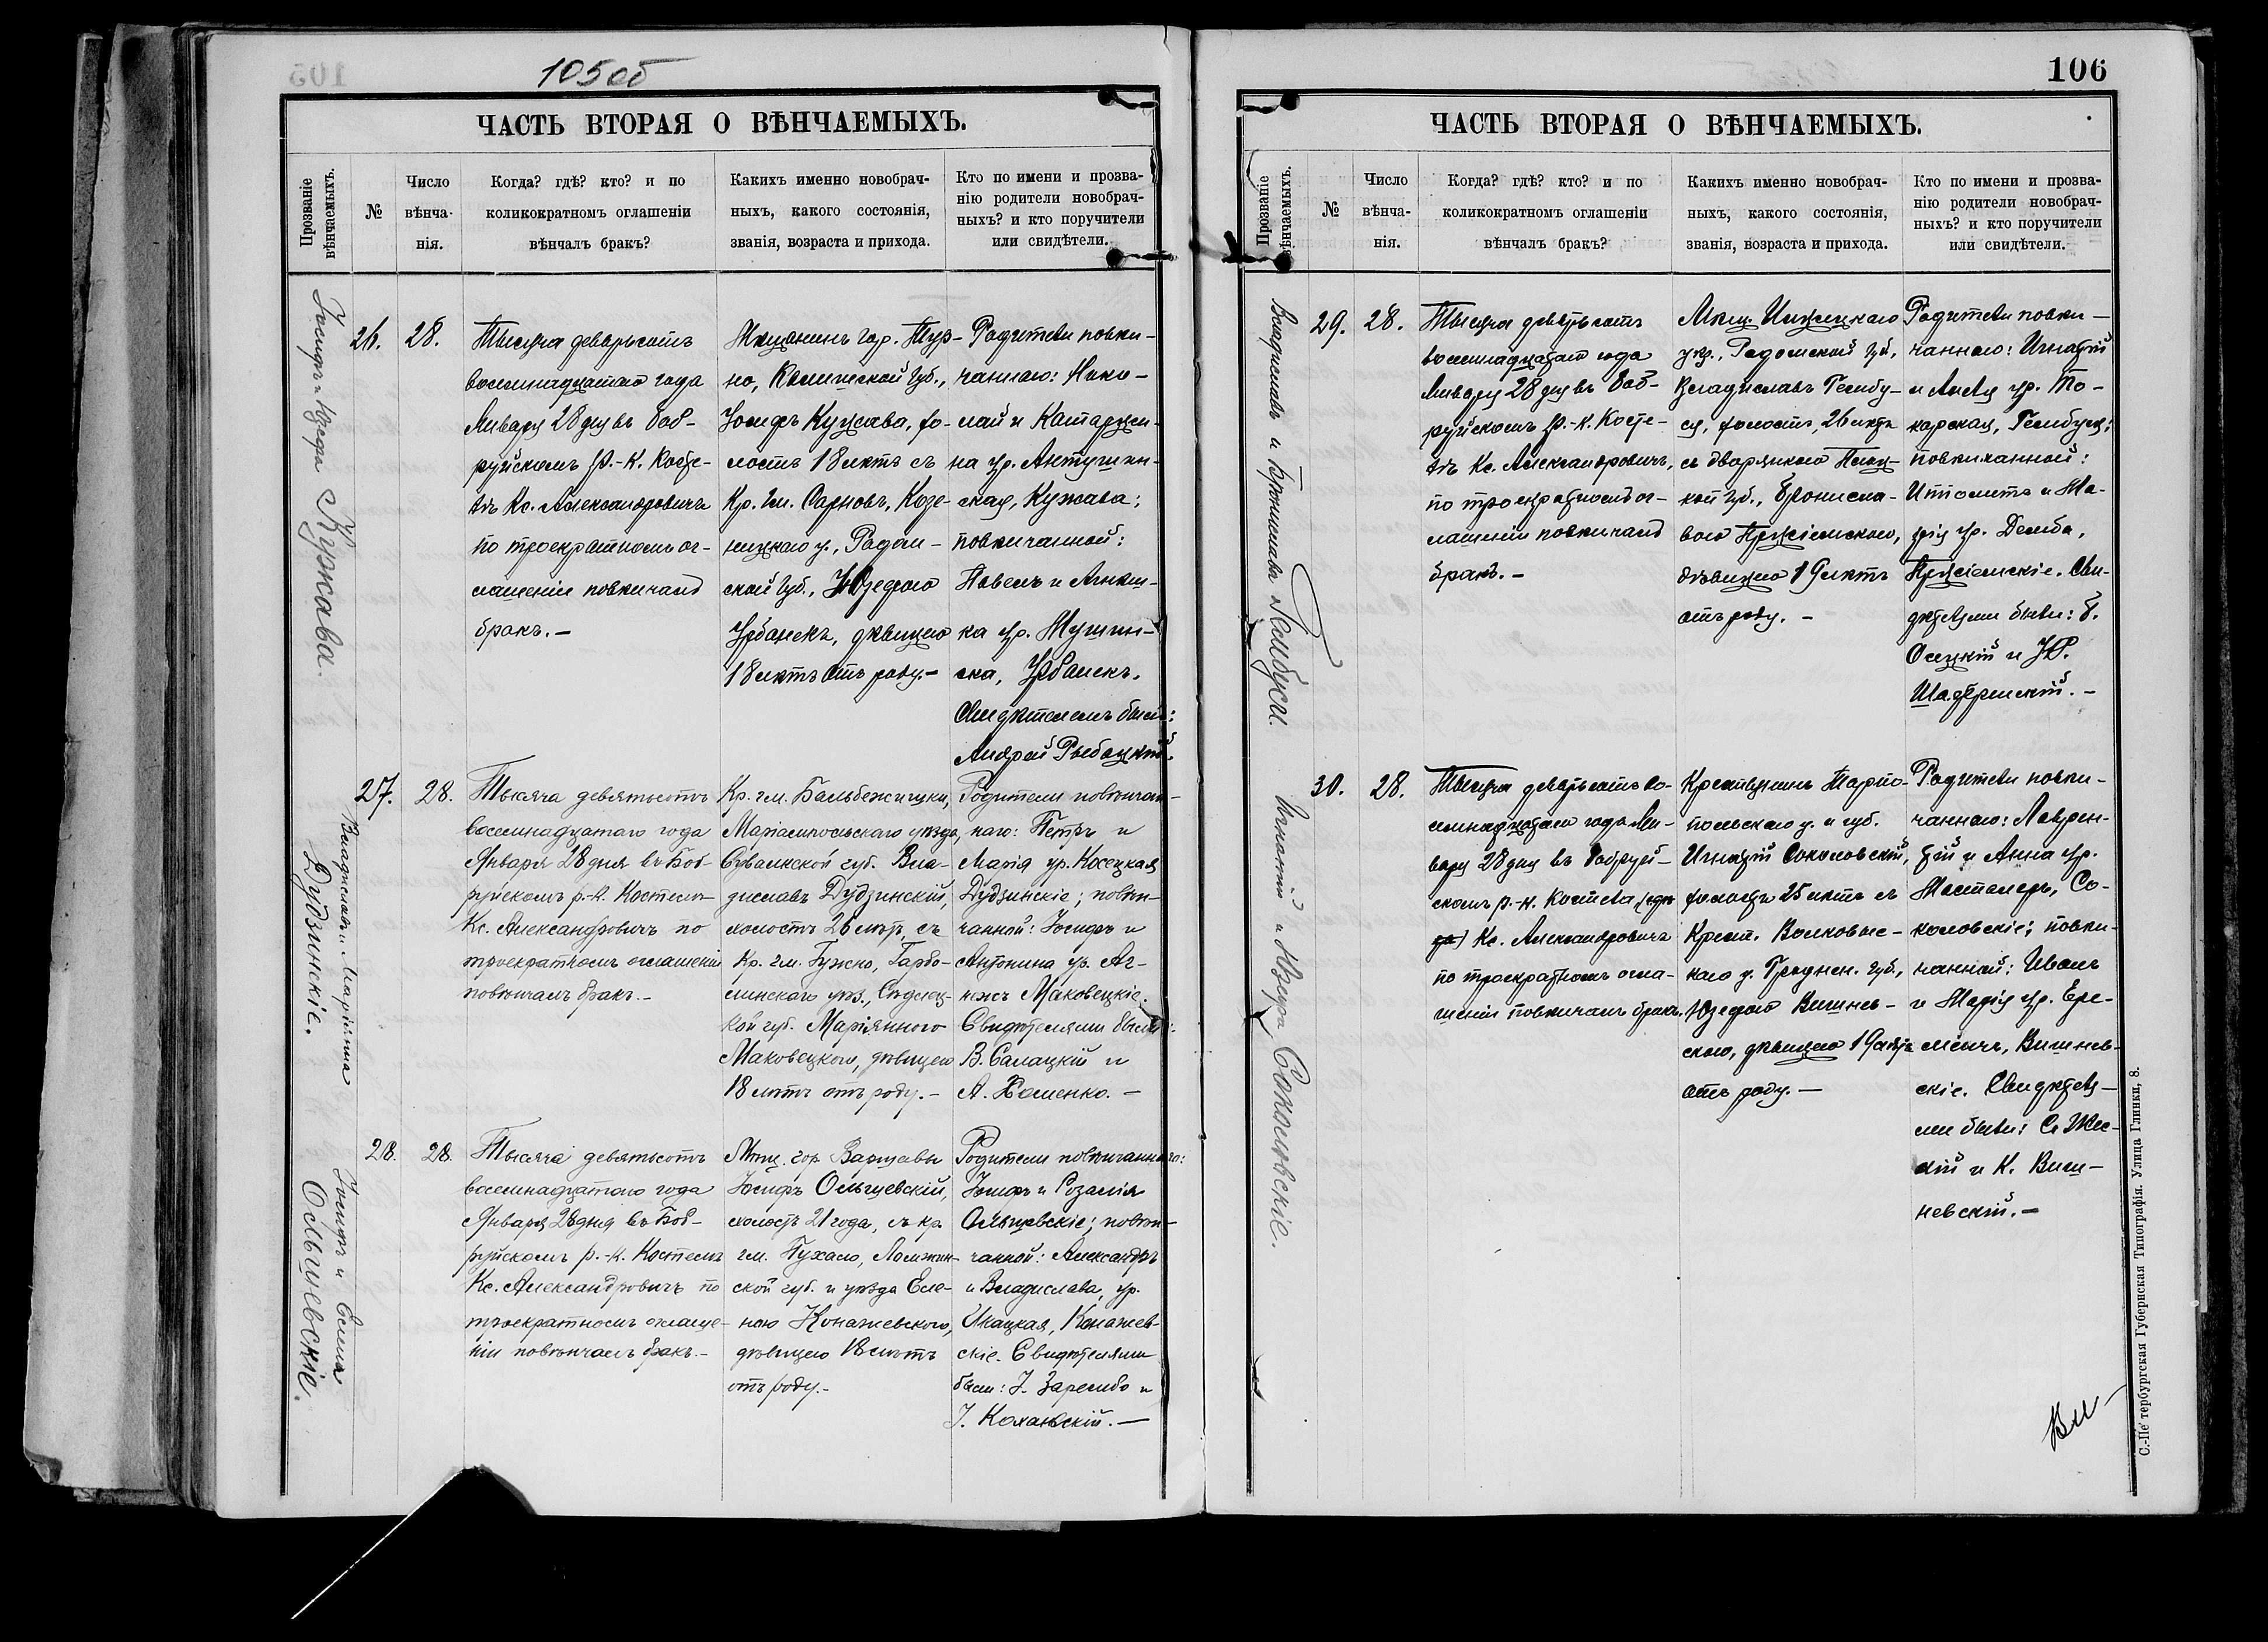 105об
ЧАСТЬ ВТОРАЯ О ВѢНЧАЕМЫХЪ.
Прозваніе
вѣнчаемыхъ.
№
Число
вѣнча-
нія.
Когда? гдѣ? кто? и по
коликократномъ оглашеніи
вѣнчалъ бракъ?
Какихъ именно новобрач-
ныхъ, какого состоянія,
званія, возраста и прихода.
Кто по имени и прозва-
нію родители новобрач-
ныхъ? и кто поручители
или свидѣтели.
Іосифъ и Юзефа Кужава.
26.
28.
Тысяча девятьсотъ
восемнадцатаго года
Января 28 дня въ Боб-
руйскомъ р.-к. Косте-
лѣ Кс. Александровичъ
по троекратномъ ог-
лашеніи повѣнчалъ
бракъ.-
Мѣщанинъ гор. Тур-
но, Калишской губ.,
Іосифъ Кужава, хо-
лостъ 18 лѣтъ съ
Кр. гм. Сарновъ, Козе-
ницкаго у., Радом-
ской губ., Юзефою
Урбанекъ, дѣвицею
18 лѣтъ отъ роду.-
Родители повѣн-
чаннаго: Нико-
лай и Катаржи-
на ур. Антушин-
ская, Кужава;
повѣнчанной:
Павелъ и Агнѣш-
ка ур. Мушин-
ска, Урбанекъ.
Свидѣтелемъ былъ:
Андрей Рыбацкій.
Владиславъ и Маріянна
Дудзинскіе.
27.
28.
Тысяча девятьсотъ
восемнадцатаго года
Января 28 дня въ Боб-
руйскомъ р.-к. Костелѣ
Кс. Александровичъ по
троекратномъ оглашеніи
повѣнчалъ бракъ.-
Кр. гм. Бальбежишки,
Маріампольскаго уѣзда,
Сувалкской губ. Вла-
диславъ Дудзинскій,
холостъ 26 лѣтъ, съ
Кр. гм. Гужно, Гарво-
линскаго уѣз., Сѣдлец-
кой губ. Маріянною
Маковецкою, дѣвицею
18 лѣтъ отъ роду.-
Родители повѣнчан-
наго: Петръ и
Марія ур. Косецкая
Дудзинскіе; повѣн-
чанной: Іосифъ и
Антонина ур. Аг-
нежъ Маковецкіе.
Свидѣтелями были:
В. Салацкій и
А. Хоменко.-
Іосифъ и Елена
Ольшевскіе.
28.
28.
Тысяча девятьсотъ
восемнадцатаго года
Января 28 дня въ Боб-
руйскомъ р.-к. Костелѣ
Кс. Александровичъ по
троекратномъ оглаше-
ніи повѣнчалъ бракъ.-
Мѣщ. гор. Варшавы
Іосифъ Ольшевскій,
холостъ 21 года, съ кр.
гм. Пухало, Ломжин-
ской губ. и уѣзда Еле-
ною Конажевскою,
дѣвицею 18 лѣтъ
отъ роду.-
Родители повѣнчаннаго:
Іосифъ и Розалія
Ольшевскіе; повѣн-
чанной: Александръ
и Владислава, ур.
Икацкая, Конажев-
скіе. Свидѣтелями
были: І. Зарембо и
І. Коханьскій.-
106
ЧАСТЬ ВТОРАЯ О ВѢНЧАЕМЫХЪ.
Прозваніе
вѣнчаемыхъ.
№
Число
вѣнча-
нія.
Когда? гдѣ? кто? и по
коликократномъ оглашеніи
вѣнчалъ бракъ?
Какихъ именно новобрач-
ныхъ, какого состоянія,
званія, возраста и прихода.
Кто по имени и прозва-
нію родители новобрач-
ныхъ? и кто поручители
или свидѣтели.
Владиславъ и Бронислава Гембуси.
29.
28.
Тысяча девятьсотъ
восемнадцатаго года
Января 28 дня въ Боб-
руйскомъ р.-к. Косте-
лѣ Кс. Александровичъ,
по троекратномъ ог-
лашеніи повѣнчалъ
бракъ.-
Мѣщ. Илжецкаго
уѣз., Радомской губ.,
Владиславъ Гембу-
ся, холостъ, 26 лѣтъ
съ дворянкою Плоц-
кой губ., Бронисла-
вою Пржіемскою,
дѣвицею 19 лѣтъ
отъ роду.-
Родители повѣн-
чаннаго: Игнатій
и Анеля ур. То-
карская, Гембуся;
повѣнчанной:
Ипполитъ и Ма-
рія ур. Демба,
Пржіемскіе. Сви-
дѣтелями были: Б.
Осецкій и Ю.
Шадерскій.-
Игнатій и Юзефа Соколовскіе.
30.
28.
Тысяча девятьсотъ во-
семнадцатаго года Ян-
варя 28 дня въ Бобруй-
скомъ р.-к. Костелѣ
Кс. Александровичъ
по троекратномъ огла-
шеніи повѣнчалъ бракъ.
Крестьянинъ Тарно-
польскаго у. и губ.
Игнатій Соколовскій,
холостъ 25 лѣтъ съ
Крест. Волковыс-
каго у. Гроднен. губ.,
Юзефою Вишнев-
скою, дѣвицею 19 лѣтъ
отъ роду.-
Родители повѣн-
чаннаго: Лаврен-
тій и Анна ур.
Местлеръ, Со-
коловскіе; повѣн-
чанной: Иванъ
и Марія ур. Ере-
мичъ, Вишнев-
скіе. Свидѣтеля-
ми были: С. Жес-
кій и К. Виш-
невскій.-
С.-Петербургская Губернская Типографія. Улица Глинки, 8.